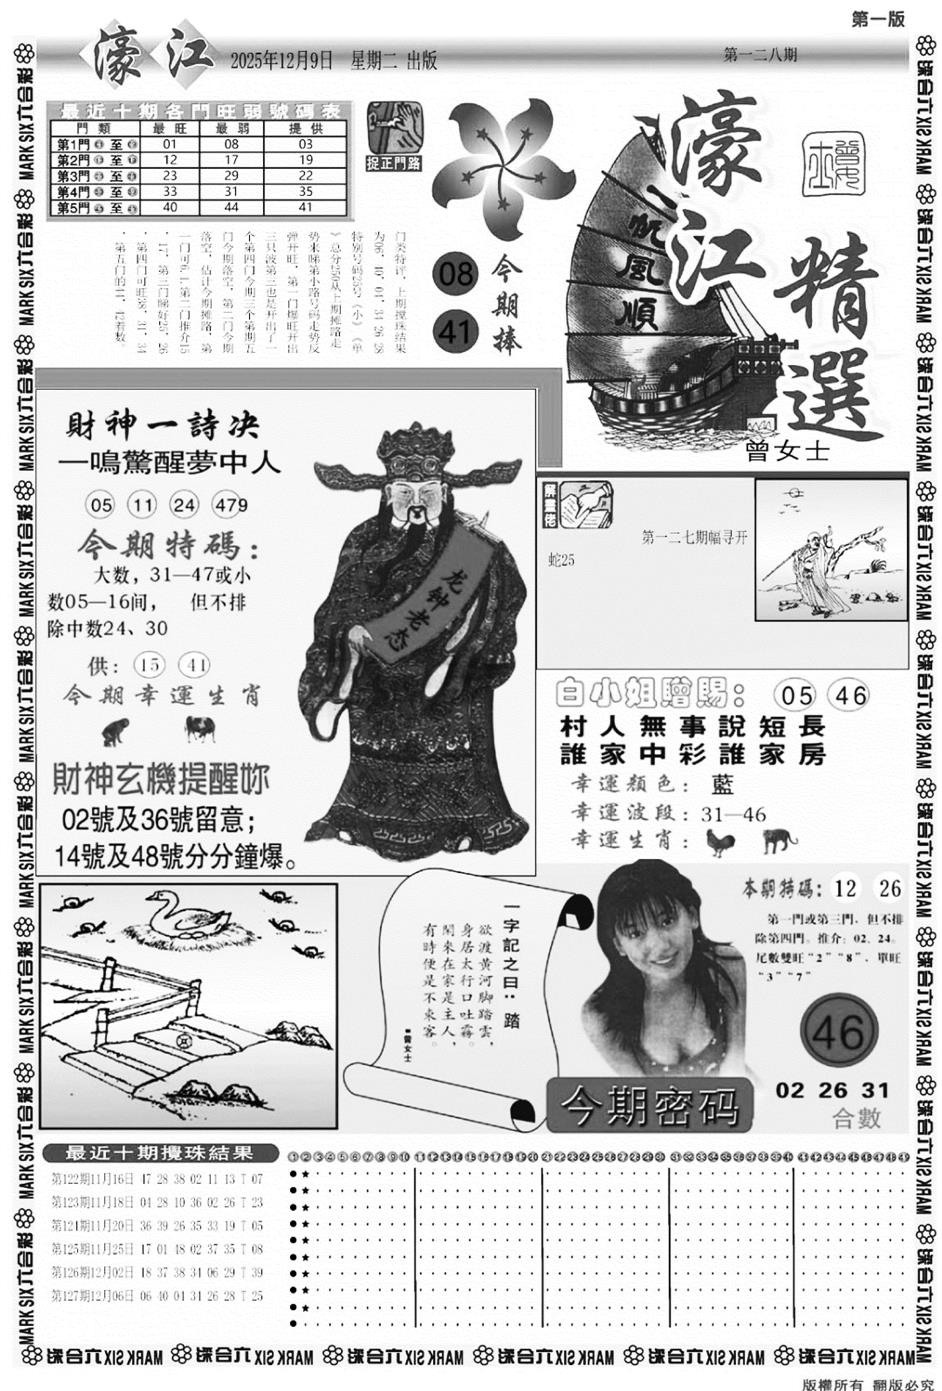 第一版
濠江 2025年12月9日 星期二 出版
第一二八期
最近十期各門旺弱號碼表
門類 最旺 最弱 提供
第1門 至 01 08 03
第2門 至 12 17 19
第3門 至 23 29 22
第4門 至 33 31 35
第5門 至 40 44 41
捉正門路
08
41
今期捧
濠江
精選
一帆風順
曾女士
门类特评，上期搅珠结果
为06、40、04、34、26、28
特别号码25号《小》《单
》总分
势来睇第小路号码走势反
弹开旺，第一门爆旺开出
三只波第三也是开出了一
个第四门今期三个第期五
门今期落空，第二门今期
落空，估计今期摊路，第
一门可6、1、第二门推介15
、17、第三门睇好25、26
、第四门可旺38、31、34
、第五门的41、42着数。
財神一詩决
一鳴驚醒夢中人
05 11 24 479
今期特碼：
大数，31—47或小
数05—16间， 但不排
除中数24、30
供：15 41
今期幸運生肖
財神玄機提醒妳
02號及36號留意；
14號及48號分分鐘爆。
龙钟老态
第一二七期幅寻开
蛇25
白小姐贈賜：05 46
村人無事說短長
誰家中彩誰家房
幸運顏色：藍
幸運波段：31—46
幸運生肖：
一字記之曰：踏
欲渡黄河脚踏雲，
身居太行口吐霧。
閑來在家是主人，
有時便是不來客。
■曾女士
本期特碼：12 26
第一門或第三門，但不排
除第四門。推介：02、24。
尾數雙旺“2”“8”，單旺
“3”“7”
46
今期密码
02 26 31
合數
最近十期攪珠結果
第122期11月16日 47 28 38 02 11 13 T 07
第123期11月18日 04 28 10 36 02 26 T 23
第124期11月20日 36 39 26 35 33 19 T 05
第125期11月25日 17 01 48 02 37 35 T 08
第126期12月02日 18 37 38 34 06 29 T 39
第127期12月06日 06 40 04 34 26 28 T 25
MARK SIX六合彩
版權所有 翻版必究